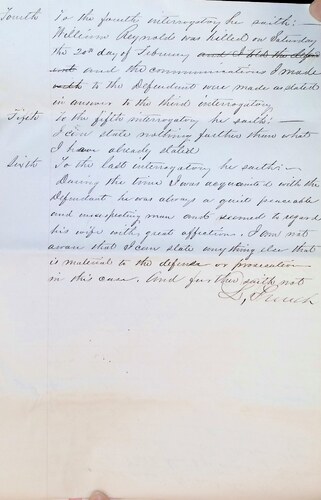 Fourth To the fourth interrogatory he saith: —
William Reynolds was killed on Saturday
the 20th day of February and I told the defen
ent and the communications I made
to the Defendant were made as stated
in answer to the third interrogatory
Fifth To the fifth interrogatory he saith: —
I can state nothing further than what
I have already stated
Sixth To the last interrogatory he saith: —
During the time I was acquainted with the
Defendant he was always a quiet peaceable
and unsuspecting man and seemed to regard
his wife with great affection. I am not
aware that I can state anything else that
is material to the defense or prosecution
in this case. And further saith not